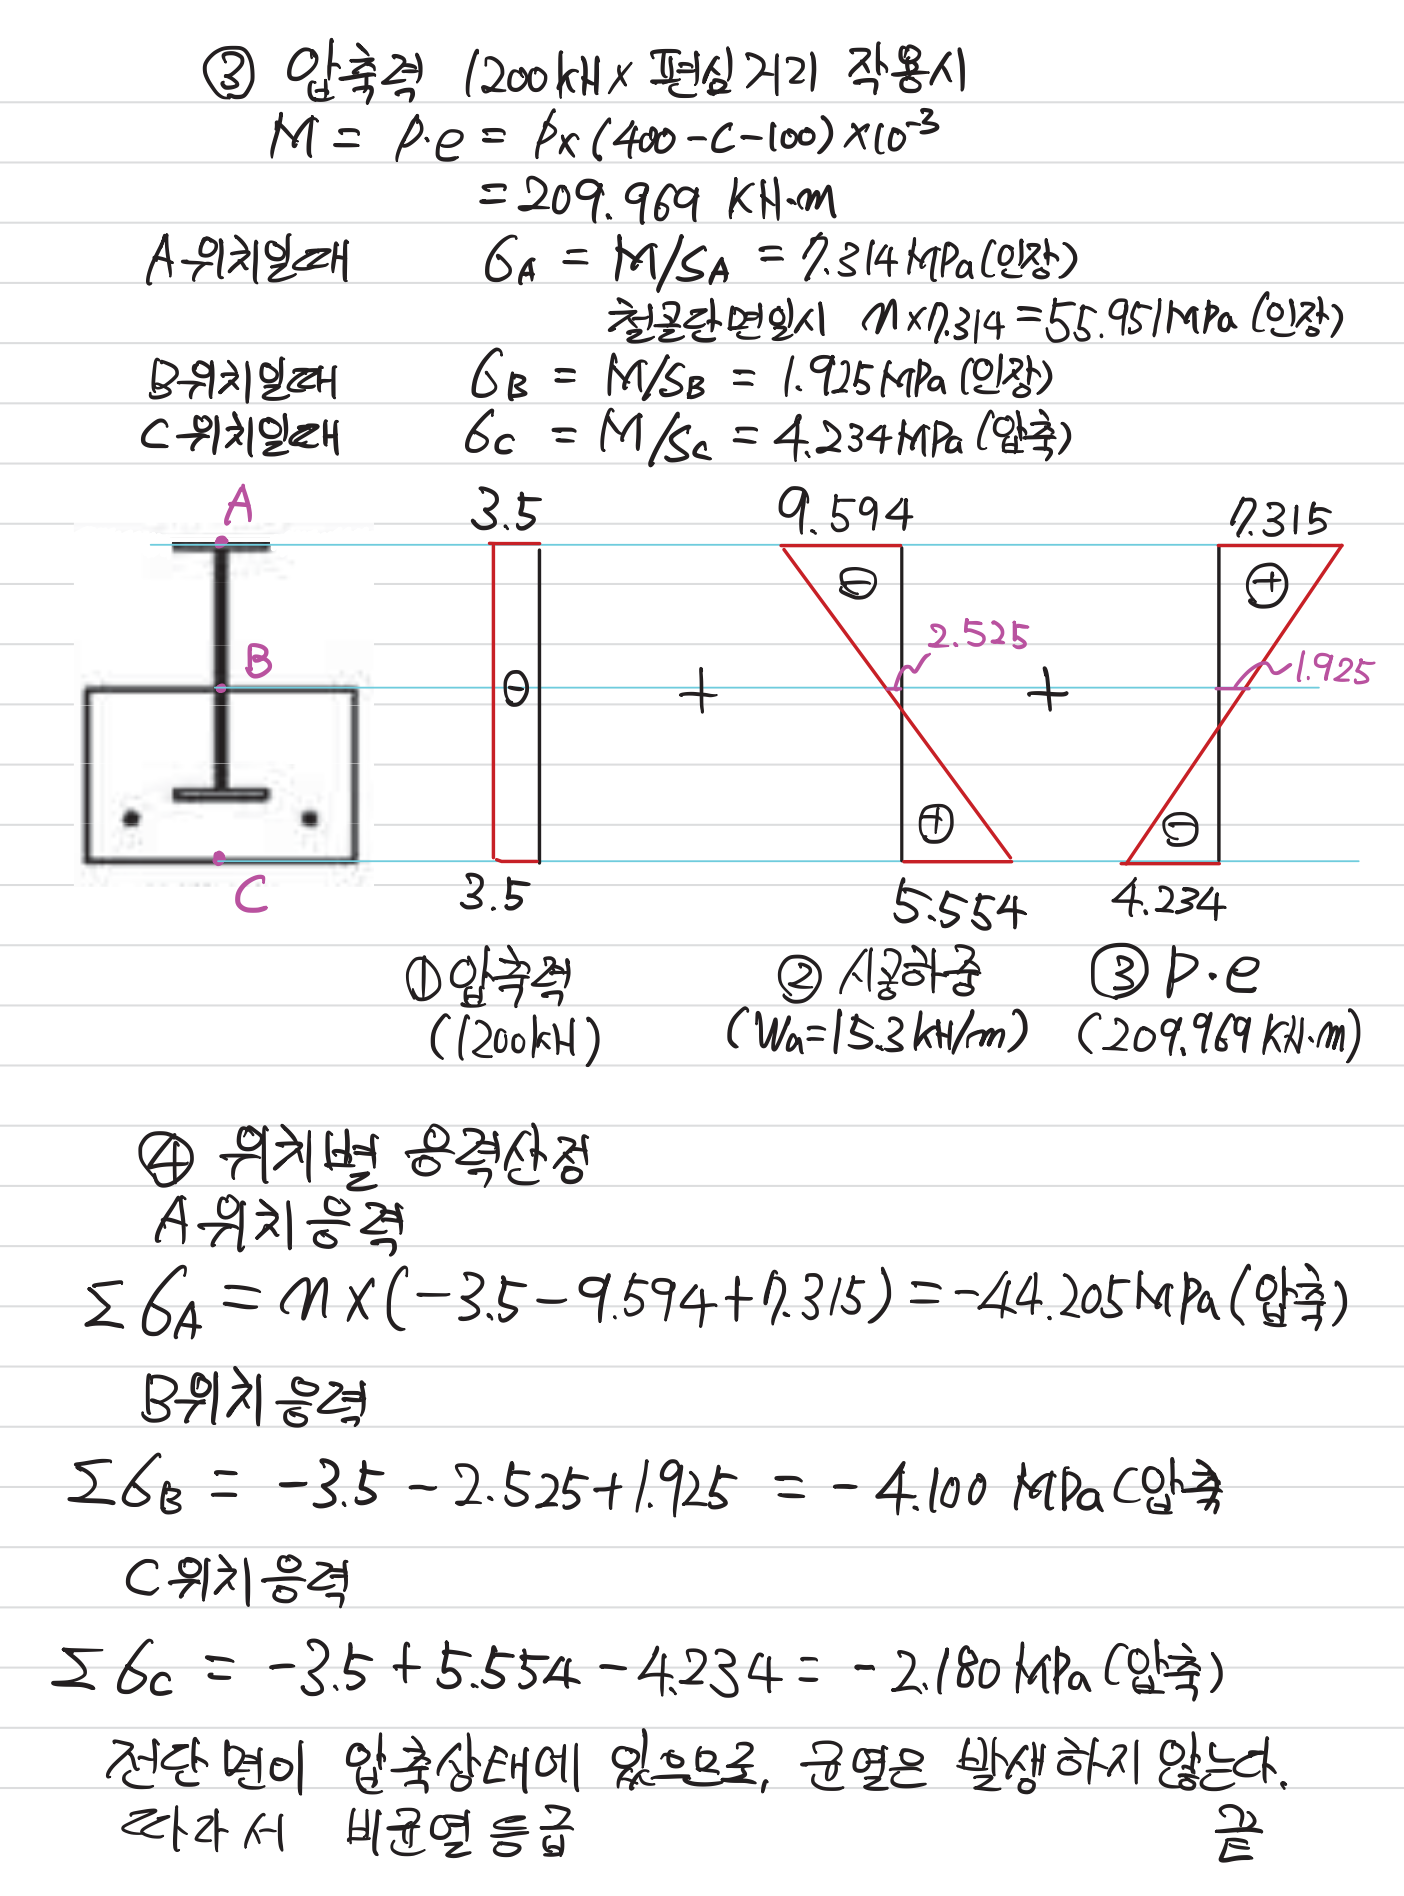 ③ 압축력 1200kN x 편심거리 작용시
M = P·e = P x (400 - C - 100) x 10⁻³
= 209.969 KN·m
A위치일때 σA = M/SA = 7.314 MPa (인장)
철골단면일시 n x 7.314 = 55.951 MPa (인장)
B위치일때 σB = M/SB = 1.925 MPa (인장)
C위치일때 σc = M/Sc = 4.234 MPa (압축)
A 3.5 9.594 7.315
⊖ ⊕
B 2.525 1.925
⊖ + +
⊕ ⊖
C 3.5 5.554 4.234
① 압축력 ② 시공하중 ③ P·e
(1200kN) (Wa=15.3 kN/m) (209.969 KN·m)
④ 위치별 응력산정
A위치응력
ΣσA = n x (-3.5 - 9.594 + 7.315) = -44.205 MPa (압축)
B위치응력
ΣσB = -3.5 - 2.525 + 1.925 = -4.100 MPa (압축
C위치응력
Σσc = -3.5 + 5.554 - 4.234 = -2.180 MPa (압축)
전단면이 압축상태에 있으므로, 균열은 발생하지 않는다.
따라서 비균열등급 끝